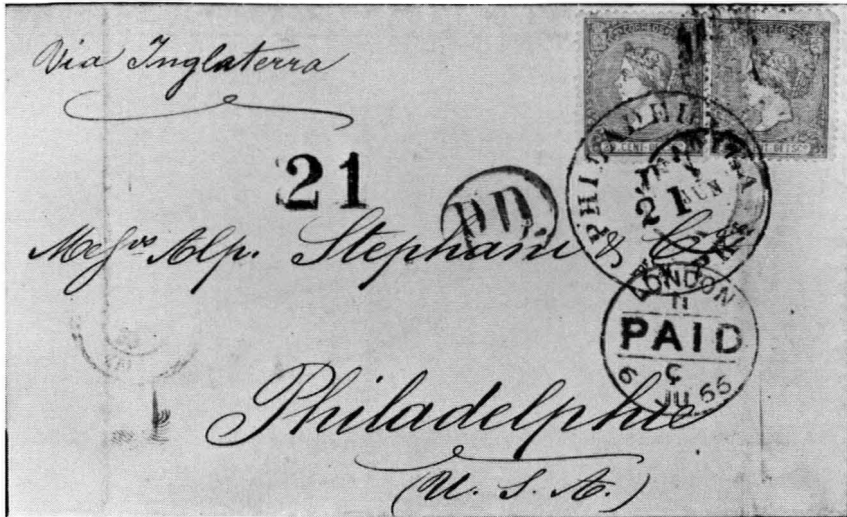 Via Inglaterra
21
P.D.
PHILADELPHIA
21
JUN
Messrs Alp. Stephani & Co
LONDON
PAID
6
JU 66
Philadelphie
(U. S. A.)